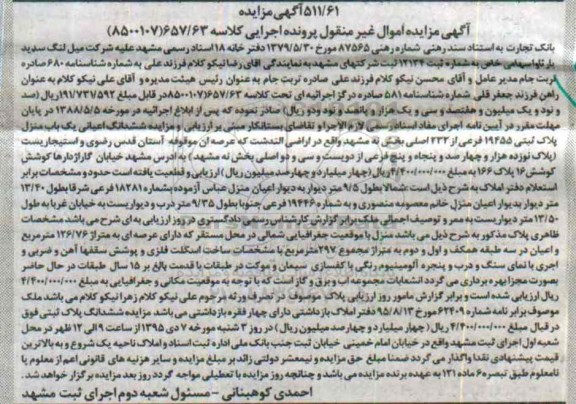 ۵۱۱/۶۱آگهی مزایده
آگهی مزایده اموال غیر منقول پرونده اجرایی کلاسه ۶۵۷/۶۳(۸۵۰۰۱۰۷)
بانک تجارت به استناد سند رهنی شماره رهنی ۸۷۵۶۵ مورخ ۱۳۷۹/۵/۳۰ دفتر خانه ۱۸ اسناد رسمی مشهد علیه شرکت مبل لنگ سدید
بارثاوا سهامی خاص به شماره ثبت ۱۲۱۳۴ ثبت شرکتهای مشهد به نمایندگی آقای رضا نیکو کلام فرزند علی به شماره شناسنامه ۶۸۰ صادره
تربت جام مدیر عامل و آقای محسن نیکو کلام فرزند علی صادره تربت جام به عنوان رئیس هیئت مدیره و آقای علی نیکو کلام به عنوان
راهن فرزند جعفر قلی شماره شناسنامه ۵۸۱ صادره درگز اجرائیه ای تحت کلاسه ۶۵۷/۶۳(۸۵۰۰۱۰۷)در قابل مبلغ ۱۹۱/۷۳۷/۵۹۲ ریال (صد
و نود و یک میلیون و هفتصد و سی و یک هزار و پانصد و نود ودو ریال) صادر نموده که پس از ابلاغ اجرائیه در مورخه ۱۳۸۸/۵/۵ در پایان
مهلت مقرر در آیین نامه اجرای مفاد اسنادرسمی لازم الاجرا و تقاضای بستانکار مبنی بر ارزیابی و مزایده ششدانگ اعیانی یک باب منزل
پلاک ثبتی ۱۹۴۵۵ فرعی از ۲۳۲ اصلی بخش نه مشهد واقع در اراضی الندشت که عرصه آن موقوفه آستان قدس رضوی و استیجاریست
(پلاک نوزده هزار و چهار صد و پنجاه و پنج فرعی از دویست و سی و دو اصلی بخش نه مشهد) به آدرس مشهد خیابان گاراژدارها کوشش
کوشش ۱۶ پلاک ۱۶۶ به مبلغ ۴/۴۰۰/۰۰۰/۰۰۰ ریال (چهار میلیارد و چهار صد میلیون ریال) ارزیابی و قطعیت یافته است حدود و مشخصات برابر
استعلام دفتر املاک به شرح ذیل است: شمالا بطول ۹/۵ متر دیوار به دیوار اعیان منزل عباس آزموده بشماره ۱۸۲۸۱ فرعی شرقا بطول ۱۳/۴۰
متر دیوار بدیوار اعیان منزل خانم معصومه منصوری و به شماره ۱۹۴۴۶ فرعی جنوبا بطول ۹/۳۵ متر درب و دیواریست به خیابان غربا به طول
۱۳/۵۰ متر دیواریست به ممر و توصیف اجمالی ملک برابر گزارش کارشناس رسمی دادگستری در روز ارزیابی به ای شرح می باشد مشخصات
ظاهری پلاک مذکور به شرح ذیل می باشد منزل با موقعیت جغرافیایی شمالی در محل مستقر که دارای عرصه ای به متراژ ۱۲۶/۷۶ متر مربع
و اعیان در سه طبقه همکف و اول و دوم به متراژ مجموع ۲۹۷ متر مربع با مشخصات ساخت اسکلت فلزی و پوشش سقفها آهن و ضربی و
آجری با نمای سنگ و درب و پنجره آلومینیوم رنگی با کفسازی سیمان و موکت در طبقات با قدمت بالغ بر ۱۵ سال طبقات در حال حاضر
بصورت مجزا بهره برداری می گردد انشعابات مجموعه آب و برق و گاز است که با توجه به موقعیت مکانی و جغرافیایی به مبلغ ۴/۴۰۰/۰۰۰/۰۰۰
ریال ارزیابی شده است و برابر گزارش مامور روز ارزیابی پلاک موصوف در تصرف ورثه مرحوم علی نیکو کلام زهرا نیکو کلام می باشد ملک
موصوف برابر نامه شماره ۶۲۴۰۹ مورخ ۹۵/۸/۱۲ دفتر املاک بازداشتی دارای چهار فقره بازداشتی می باشد مزایده ششدانگ پلاک ثبتی فوق
در قبال مبلغ ۴/۴۰۰/۰۰۰/۰۰۰ ریال (چهار میلیارد و چهارصد میلیون ریال) در روز ۳ شنبه مورخه ۷ دی ۱۳۹۵ از ساعت ۹ الی ۱۲ ظهر در محل
شعبه اول اجرای ثبت مشهد واقع در خیابان امام خمینی خیابان ثبت جنب بانک ملی اداره ثبت اسناد و املاک ناحیه یک شروع و به بالاترین
قیمت پیشنهادی نقدا واگذار می گردد ضمنا مبلغ حق مزایده و نیمعشر دولتی زائد بر مبلغ مزایده و سایر هزینه های قانونی اعم از معلوم یا
نامعلوم طبق تبصره ۶ ماده ۱۲۱ به عهده برنده مزایده می باشد و چنانچه روز مزایده با تعطیلی مواجه گردد روز بعد مزایده برگزار خواهد شد.
احمدی کوهبنانی - مسئول شعبه دوم اجرای ثبت مشهد